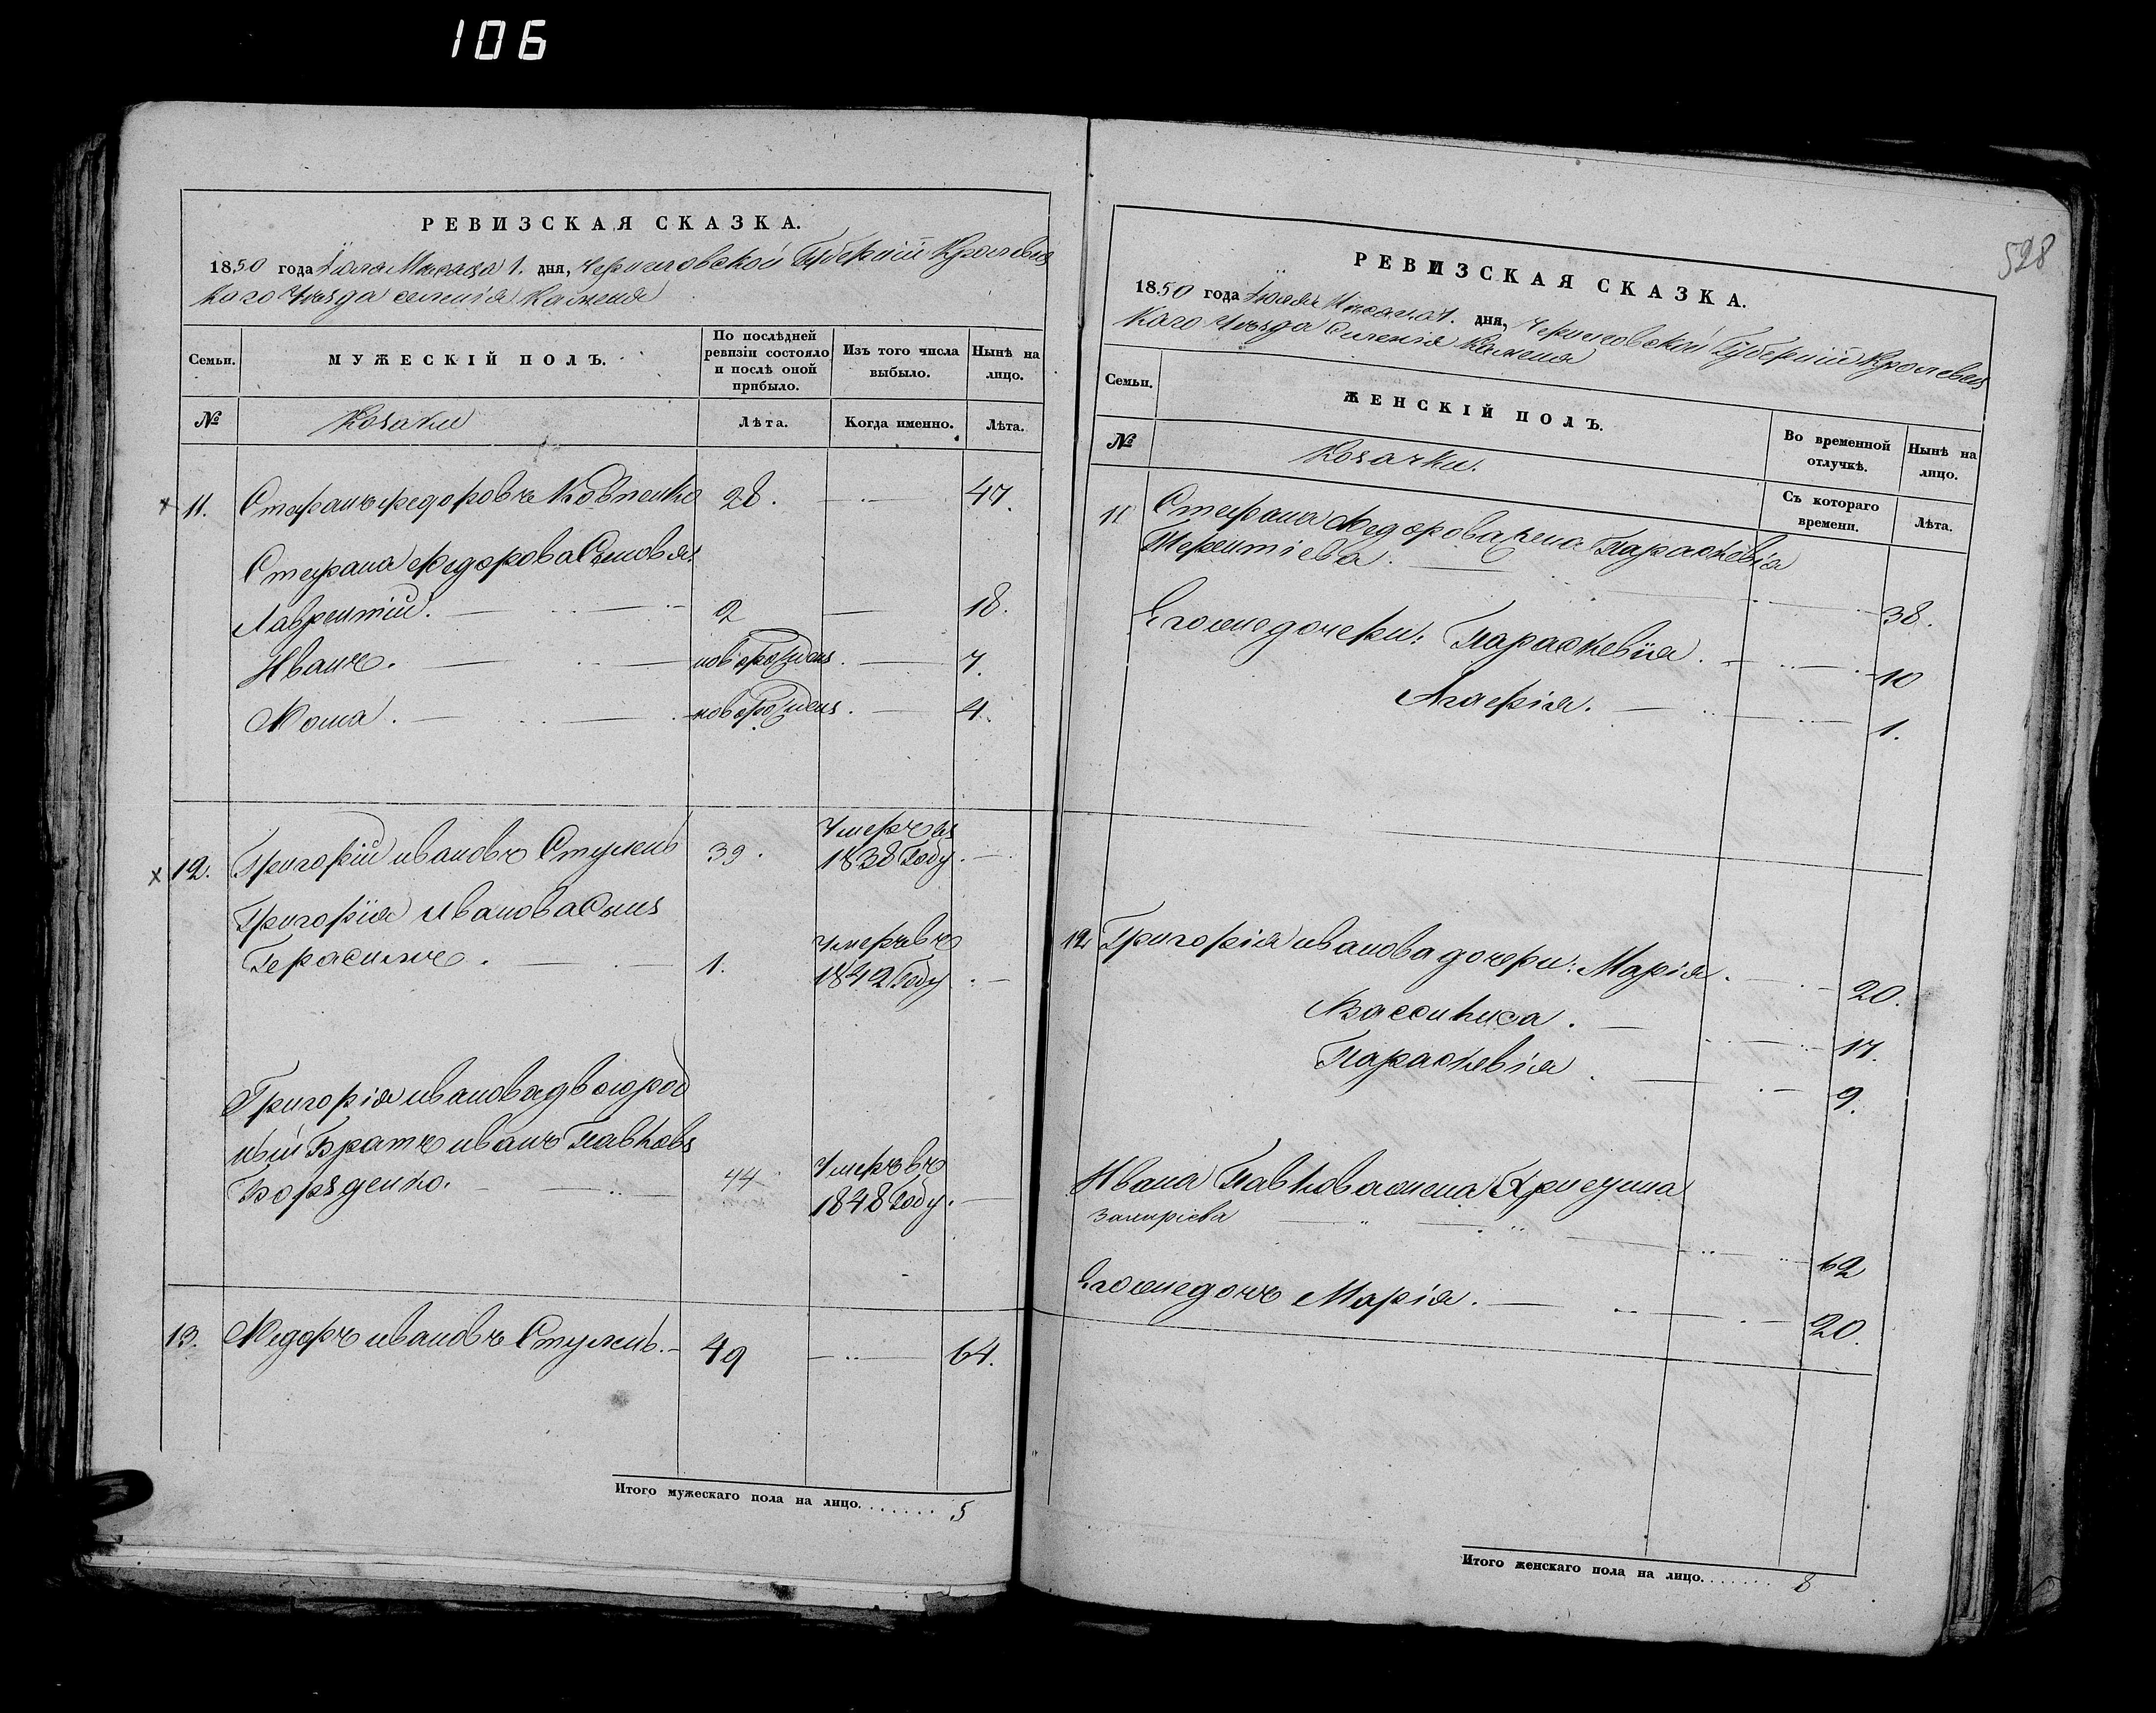 106
РЕВИЗСКАЯ СКАЗКА.
1850 года Іюля Месяца 1. дня, Черниговской Губерніи Кролевец
каго Уезда селенія Каменя
Семьи.
МУЖЕСКІЙ ПОЛЪ.
По послѣдней ревизіи состояло и послѣ оной прибыло.
Изъ того числа выбыло.
Нынѣ на лицо.
№
Козаки
Лѣта.
Когда именно.
Лѣта.
11. Стефанъ Федоровъ Ковпенко 28. 47.
Стефана Федорова Сыновья:
Лаврентій. 2 18.
Иванъ. новорожденъ. 7.
Фома. новорожденъ. 4.
х 12. Григорій ивановъ Стужнь 39. Умеръ въ
1838 Году.
Григорія иванова Сынъ
Герасимъ. 1. Умеръ въ
1842 Году
Григорія иванова двоюрод
ный Братъ иванъ Павловъ
44 Умеръ въ
1848 Году.
13. Федоръ ивановъ Стужнь. 49 64.
Итого мужескаго пола на лицо....... 5
528
РЕВИЗСКАЯ СКАЗКА.
1850 года Іюля Месяца 1. дня, Черниговской Губерніи Кролевец
каго Уезда Селенія Каменя
Семьи.
ЖЕНСКІЙ ПОЛЪ.
Во временной отлучкѣ.
Нынѣ на лицо.
№
Козачки.
Съ котораго времени.
Лѣта.
11 Стефана Федорова жена Параскевія
Терентіева. 38.
Егоже дочери: Параскевія. 10
Агафія. 1.
12 Григорія иванова дочери: Марія. 20.
Васси­лиса. 17.
Параскевія. 9.
Ивана Павлова жена Христина
62
Егоже дочь Марія. 20.
Итого женскаго пола на лицо....... 8